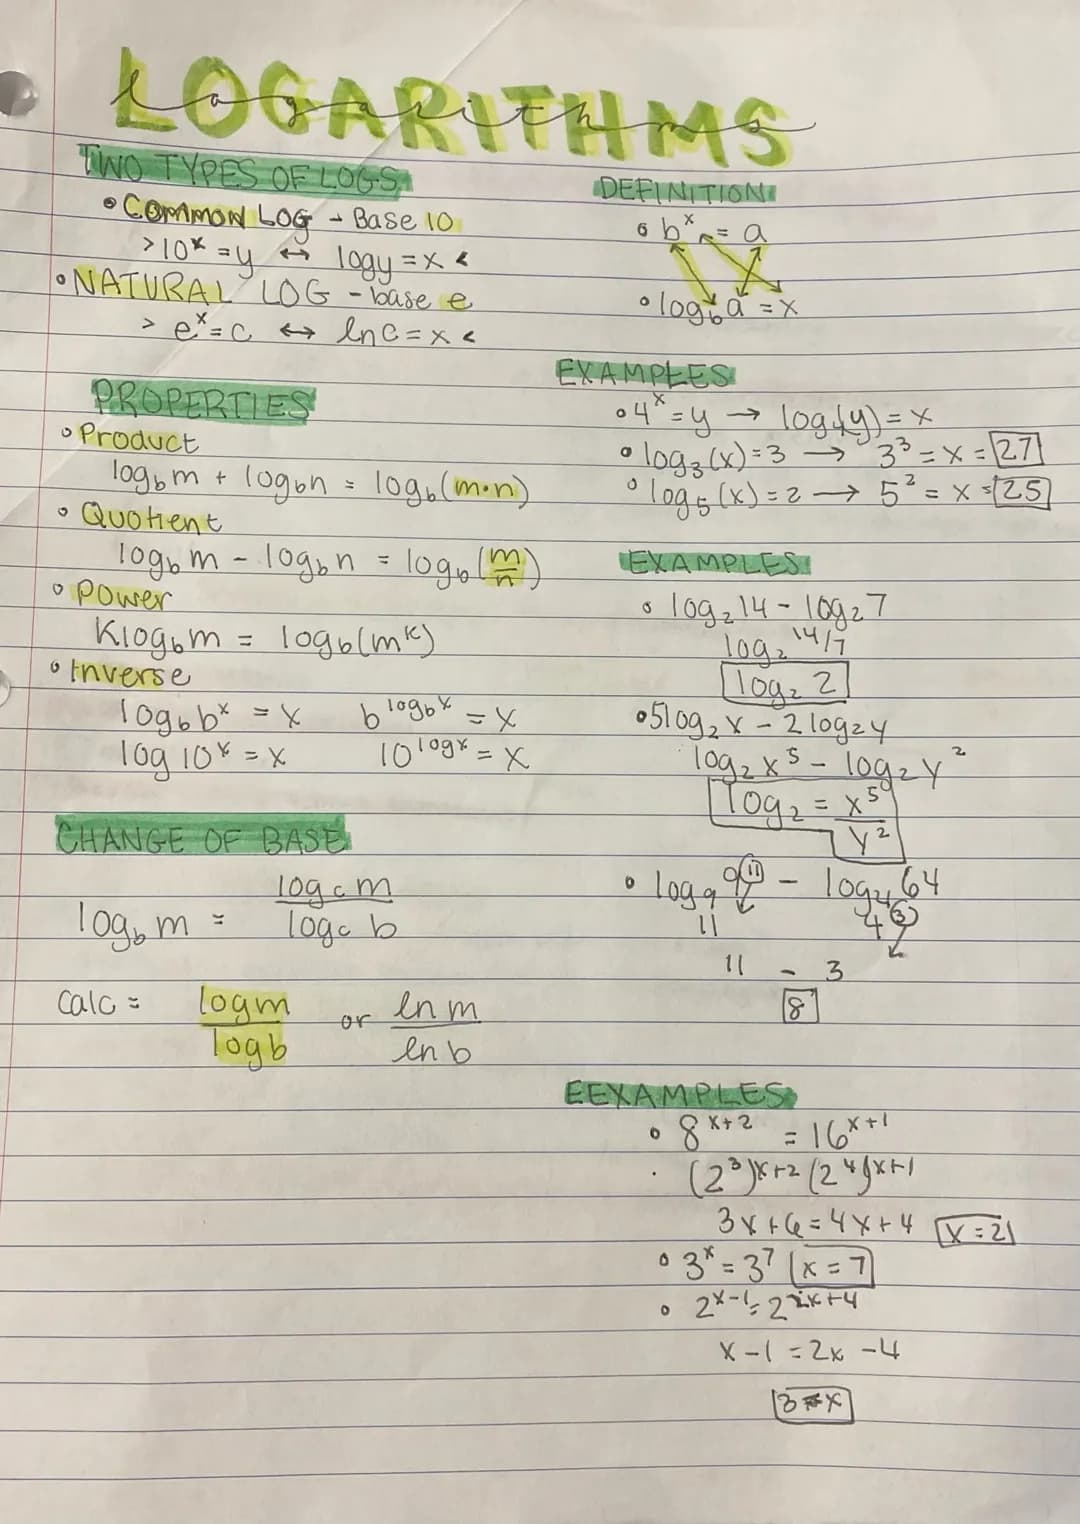 LOGARITHMS
logarithms
TWO TYPES OF LOGS
• COMMON LOG - Base 10
> 10ˣ = y ↔ log y = x <
• NATURAL LOG - base e
> eˣ = c ↔ ln c = x <
PROPERTIES
• Product
log_b m + log_b n = log_b (m·n)
• Quotient
log_b m - log_b n = log_b (m/n)
• Power
K log_b m = log_b (m^k)
• Inverse
log_b bˣ = x b^(log_b x) = x
log 10ˣ = x 10^(log x) = x
CHANGE OF BASE
log_b m = log_c m / log_c b
calc = log m / log b or ln m / ln b
DEFINITION
• bˣ = a
• log_b a = x
EXAMPLES
• 4ˣ = y → log₄(y) = x
• log₃(x) = 3 → 3³ = x = 27
• log₅(x) = 2 → 5² = x = 25
EXAMPLES
• log₂ 14 - log₂ 7
log₂ 14/7
log₂ 2
• 5 log₂ x - 2 log₂ y
log₂ x⁵ - log₂ y²
log₂ = x⁵ / y²
• log₉ 9^11 - log₄ 64
11 4^3
11 - 3
8
EEXAMPLES
• 8^(x+2) = 16^(x+1)
· (2³)^(x+2) (2⁴)^(x+1)
3x + 6 = 4x + 4 x = 2
• 3ˣ = 3⁷ x = 7
• 2^(x-1) = 2^(2x+4)
x - 1 = 2x - 4
3 = x